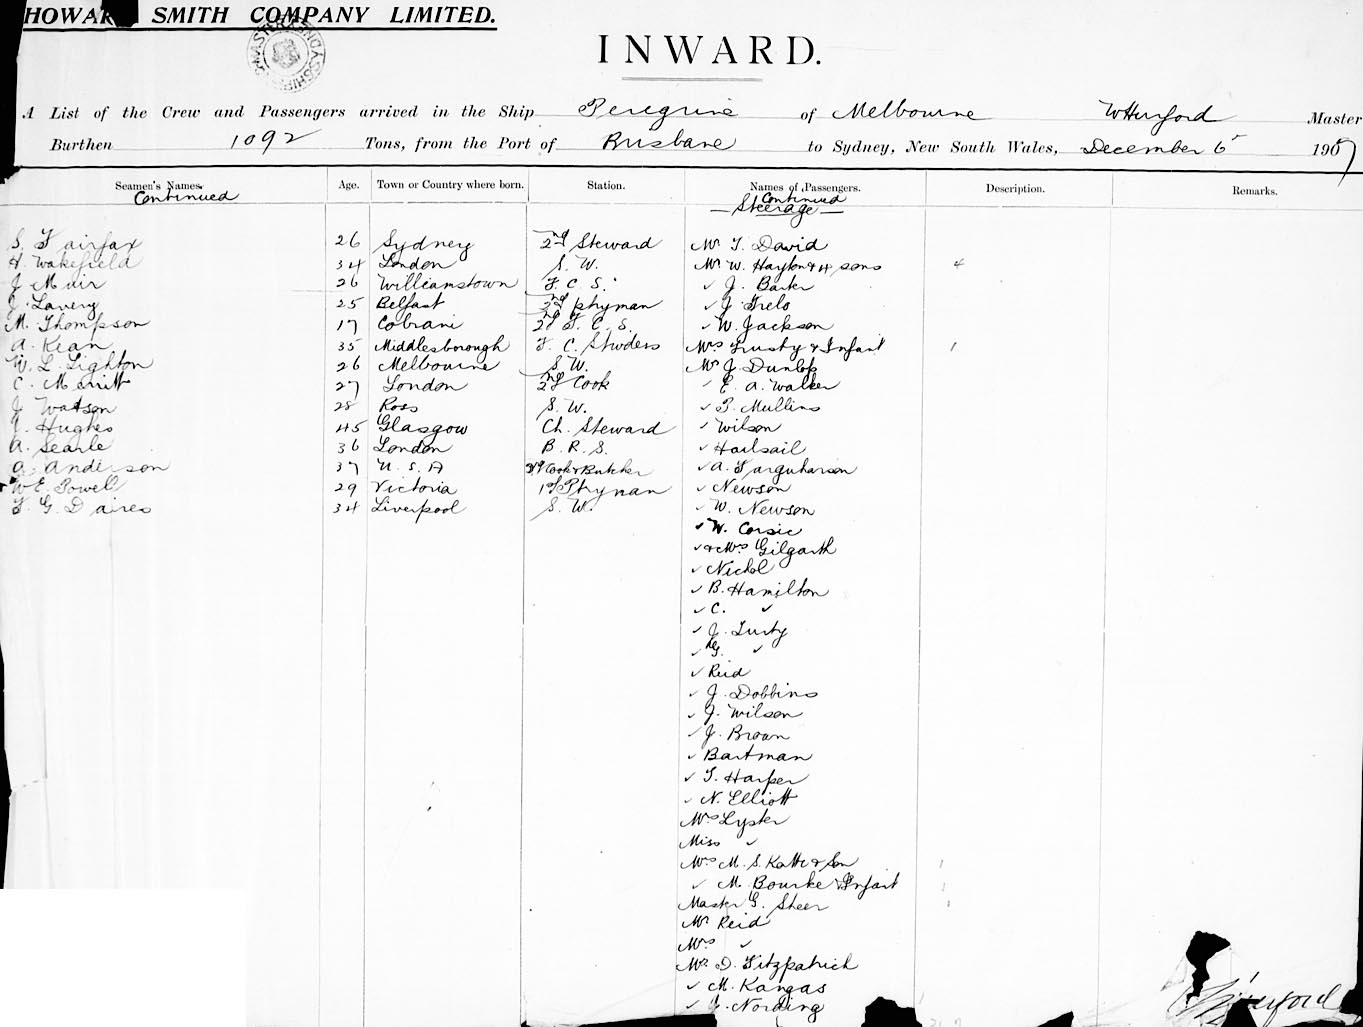 HOWARD SMITH COMPANY LIMITED.
INWARD.
A List of the Crew and Passengers arrived in the Ship Peregrine of Melbourne Master
Burthen 1092 Tons, from the Port of Brisbane to Sydney, New South Wales, December 6 1907
Seamen's Names. Age. Town or Country where born. Station. Names of Passengers. Description. Remarks.
Continued Continued
Steerage
S. Fairfax 26 Sydney 2nd Steward Mr T. David
H. Wakefield 34 London S. W. Mr W. Hayton & 4 sons 4
J Muir 26 Williamstown F. C. S. ✓ J. Barker
J. Lavery 25 Belfast 2nd Phyman ✓ J. Trelo
M. Thompson 17 Cobram 2nd F. C. S. ✓ W. Jackson
A. Kean 35 Middlesborough F. C. Stwdess Mrs Trusty & Infant 1
W. L. Lighton 26 Melbourne S. W. Mr J. Dunlop
C. Merritt 27 London 2nd Cook ✓ E. A. Walker
J Watson 28 Ross S. W. ✓ P. Mullins
Hughes 45 Glasgow Ch. Steward ✓ Wilson
A. Searle 36 London B. R. S. ✓ Hailsail
A. Anderson 37 U. S. A 3rd Cook & Butcher ✓ A. Farquharson
W E. Powell 29 Victoria 1st Phyman ✓ Newson
F. G. Daires 34 Liverpool S. W. ✓ W. Newson
✓ W. Corsie
✓ & Mrs Gilgarth
✓ Nichol
✓ B. Hamilton
✓ C. ✓
✓ J. Lusty
✓ G. ✓
✓ Reid
✓ J. Dobbins
✓ J. Wilson
✓ J. Brown
✓ Bartman
✓ T. Harper
✓ N. Elliott
Mrs Lyster
Miss ✓
Mrs M. S. Katte & Son 1
✓ M. Bourke & Infant 1
Master G. Sheer 1
Mr Reid
Mrs ✓
Mr D. Fitzpatrick
✓ M. Kangas
✓ Nording